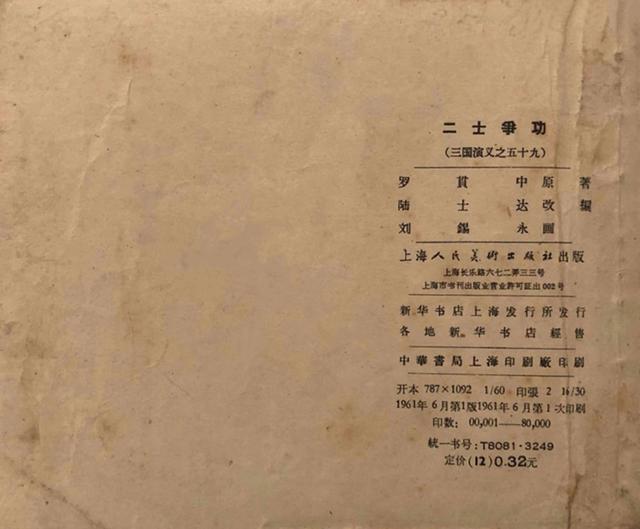 二士爭功
(三国演义之五十九)
罗貫中原著
陆士达改編
刘錫永画
上海人民美術出版社出版
上海长乐路六七二弄三三号
上海市书刊出版业营业許可証出002号
新华书店上海发行所发行
各地新华书店經售
中華書局上海印刷廠印刷
开本 787×1092 1/60 印張 2 16/30
1961年6月第1版1961年6月第1次印刷
印数: 00,001——80,000
統一书号: T8081·3249
定价(12)0.32元